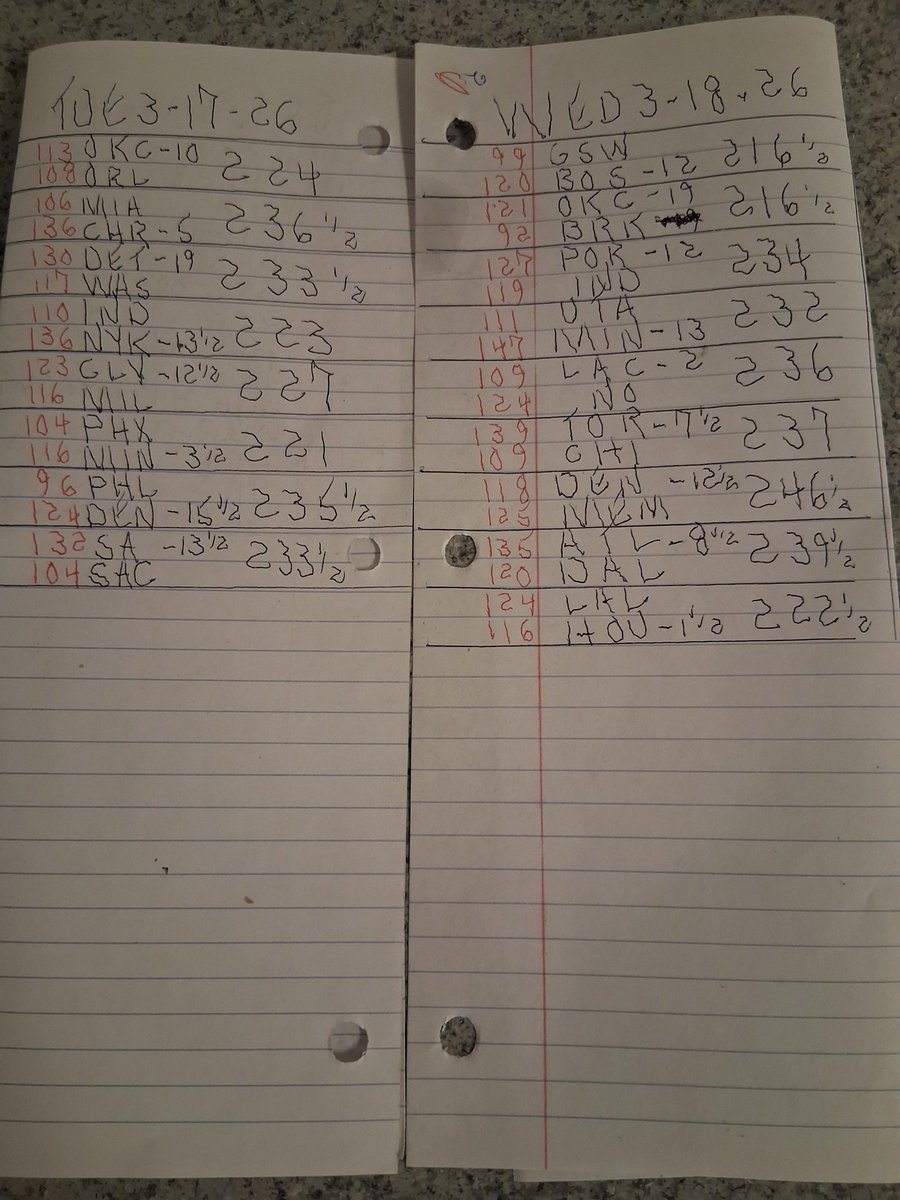 TUE 3-17-26
113 OKC-10 224
108 ORL
106 MIA 236 1/2
136 CHR-5
130 DET-19 233 1/2
117 WAS
110 IND 223
136 NYK-13 1/2
123 CLV-12 1/2 227
116 MIL
104 PHX 221
116 MIN-3 1/2
96 PHL 235 1/2
124 DEN-15 1/2
132 SA -13 1/2 233 1/2
104 SAC
WED 3-18-26
99 GSW 216 1/2
120 BOS-12
121 OKC-19 216 1/2
92 BRK
127 POR-12 234
119 IND
111 UTA 232
147 MIN-13
109 LAC-2 236
124 NO
139 TOR-7 1/2 237
109 CHI
118 DEN -12 1/2 246 1/2
125 MEM
135 ATL-8 1/2 239 1/2
120 DAL
124 LAL 222 1/2
116 HOU-1 1/2